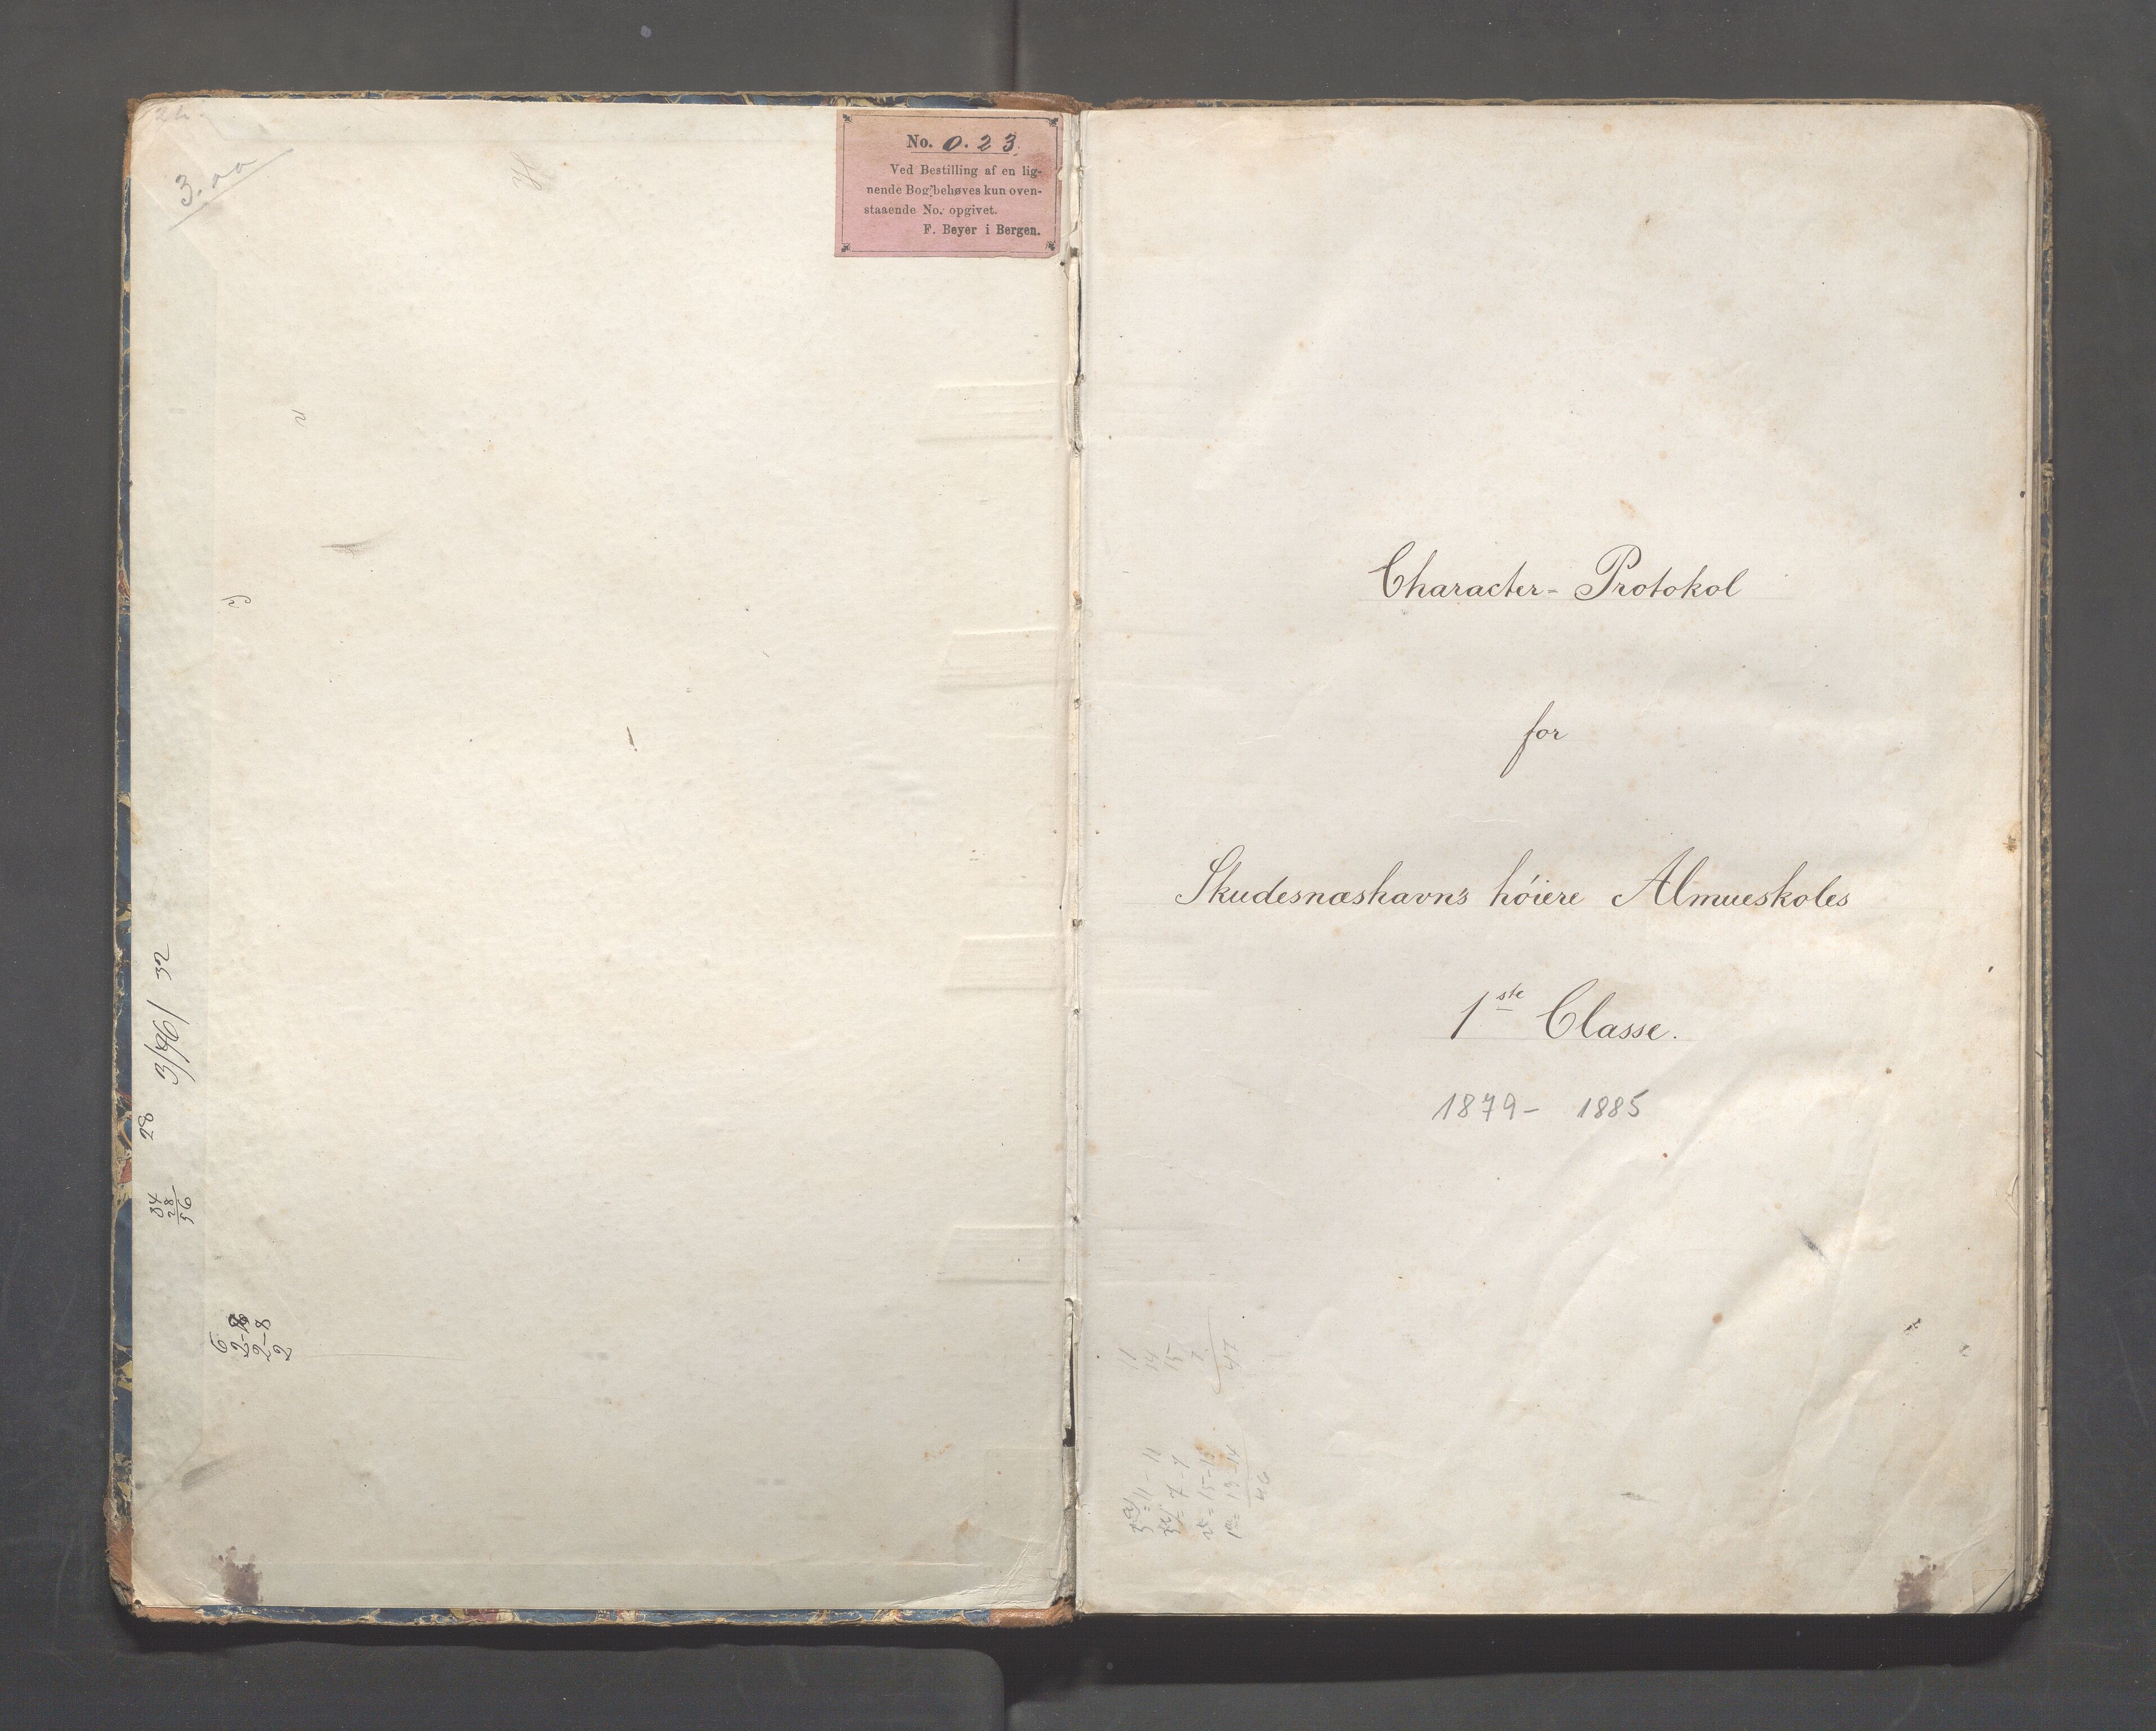 3.00
No. 0.23.
Ved Bestilling af en lig-
nende Bog behøves kun oven-
staaende No. opgivet.
F. Beyer i Bergen.
28 3/96/ 32
84
28
56
6
2-8
2
Character-Protokol
for
Skudesnæshavn's høiere Almueskoles
1ste Classe.
1879- 1885
11
14
15
7
47
= 11-11
= 7-7
= 15-15
46